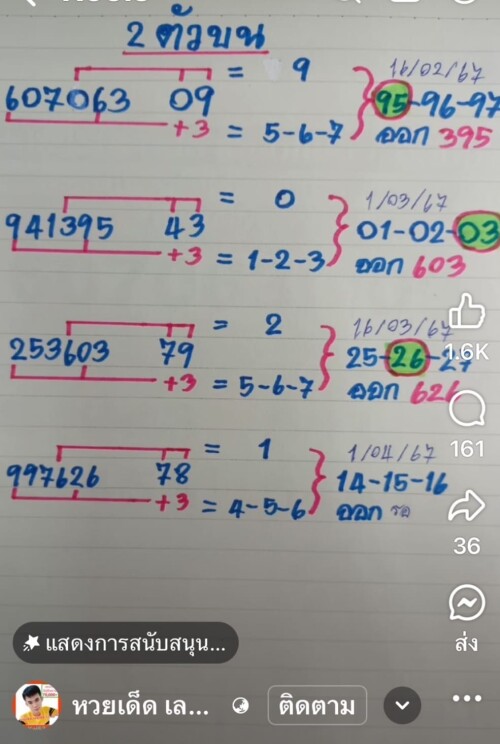 2 ตัวบน
= 9
16/02/67
607063 09
95-96-97
+3 = 5-6-7
ออก 395
= 0
1/03/67
941395 43
01-02-03
+3 = 1-2-3
ออก 603
= 2
16/03/67
253603 79
25-26-27
+3 = 5-6-7
ออก 626
1.6K
= 1
1/04/67
161
997626 78
14-15-16
+3 = 4-5-6
ออก รอ
36
แสดงการสนับสนุน...
ส่ง
หวยเด็ด เล...
ติดตาม